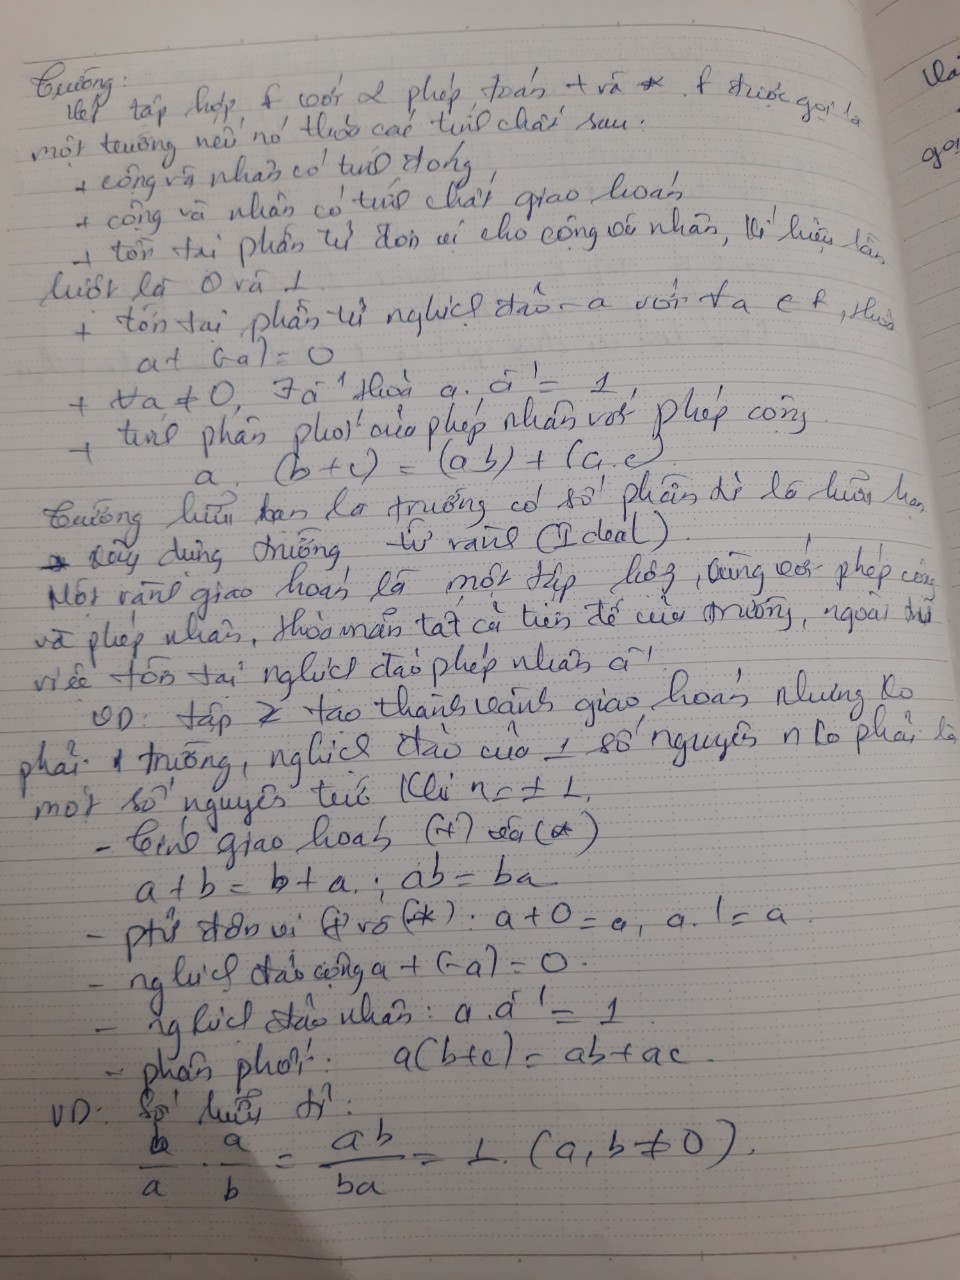 Trường:
Một tập hợp f với 2 phép toán + và *. f được gọi là
một trường nếu nó thoả các tính chất sau:
+ cộng và nhân có tính đóng
+ cộng và nhân có tính chất giao hoán
+ tồn tại phần tử đơn vị cho cộng và nhân, kí hiệu lần
lượt là 0 và 1.
+ tồn tại phần tử nghịch đảo -a với ∀a ∈ f, thoả
a + (-a) = 0
+ ∀a ≠ 0, ∃a⁻¹ thoả a. a⁻¹ = 1
+ tính phân phối của phép nhân với phép cộng
a. (b+c) = (ab) + (a.c)
Trường hữu hạn là trường có số phần tử là hữu hạn
xây dựng trường từ vành (Ideal).
Một vành giao hoán là một tập hợp, cùng với phép cộng
và phép nhân, thỏa mãn tất cả tiên đề của trường, ngoại trừ
việc tồn tại nghịch đảo phép nhân a⁻¹
VD: tập Z tạo thành vành giao hoán nhưng ko
phải 1 trường, nghịch đảo của 1 số nguyên n ko phải là
một số nguyên trừ khi n = ± 1.
- tính giao hoán (+) và (*)
a + b = b + a ; ab = ba
- ptử đơn vị (+) và (*): a + 0 = a, a. 1 = a.
- nghịch đảo cộng a + (-a) = 0.
- nghịch đảo nhân: a.a⁻¹ = 1.
- phân phối: a(b+c) = ab + ac.
VD: Số hữu tỉ:
b/a . a/b = ab/ba = 1. (a, b ≠ 0).
gọi